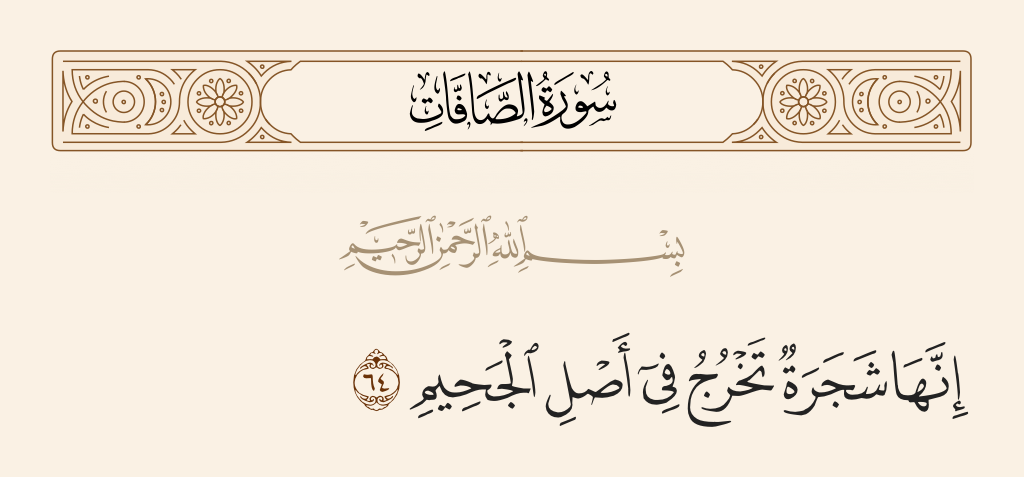 سُورَةُ الصَّافَّاتِ
بِسْمِ ٱللَّهِ ٱلرَّحْمَٰنِ ٱلرَّحِيمِ
إِنَّهَا شَجَرَةٌ تَخْرُجُ فِىٓ أَصْلِ ٱلْجَحِيمِ ٦٤